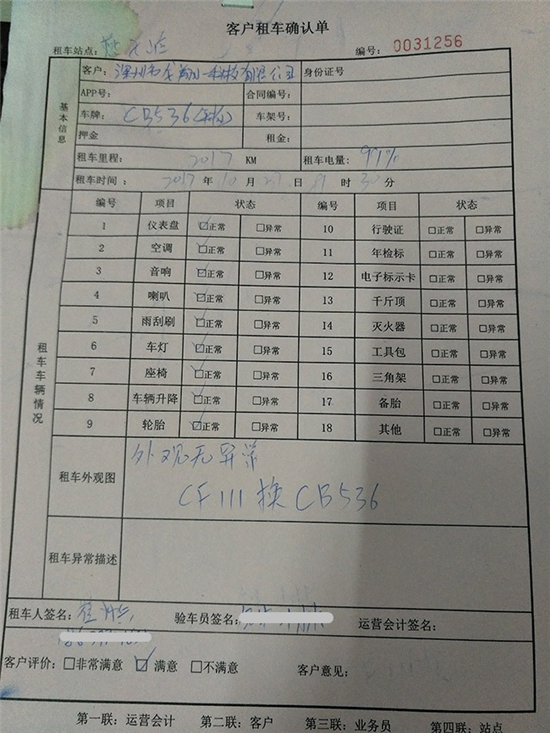 客户租车确认单
租车站点: 编号: 0031256
基本信息
客户: 深圳市 科技有限公司 身份证号
APP号: 合同编号:
车牌: CB536 车架号:
押金 租金:
租车里程: 2017 KM 租车电量: 99%
租车时间: 2017年10月27日 时30分
租车车辆情况
编号 项目 状态 编号 项目 状态
1 仪表盘 ☑正常 □异常 10 行驶证 □正常 □异常
2 空调 ☑正常 □异常 11 年检标 □正常 □异常
3 音响 ☑正常 □异常 12 电子标示卡 □正常 □异常
4 喇叭 ☑正常 □异常 13 千斤顶 □正常 □异常
5 雨刮刷 ☑正常 □异常 14 灭火器 □正常 □异常
6 车灯 ☑正常 □异常 15 工具包 □正常 □异常
7 座椅 ☑正常 □异常 16 三角架 □正常 □异常
8 车辆升降 ☑正常 □异常 17 备胎 □正常 □异常
9 轮胎 ☑正常 □异常 18 其他 □正常 □异常
租车外观图 外观无异常
CF111换CB536
租车异常描述
租车人签名: 验车员签名: 运营会计签名:
客户评价: □非常满意 ☑满意 □不满意 客户意见:
第一联: 运营会计 第二联: 客户 第三联: 业务员 第四联: 站点